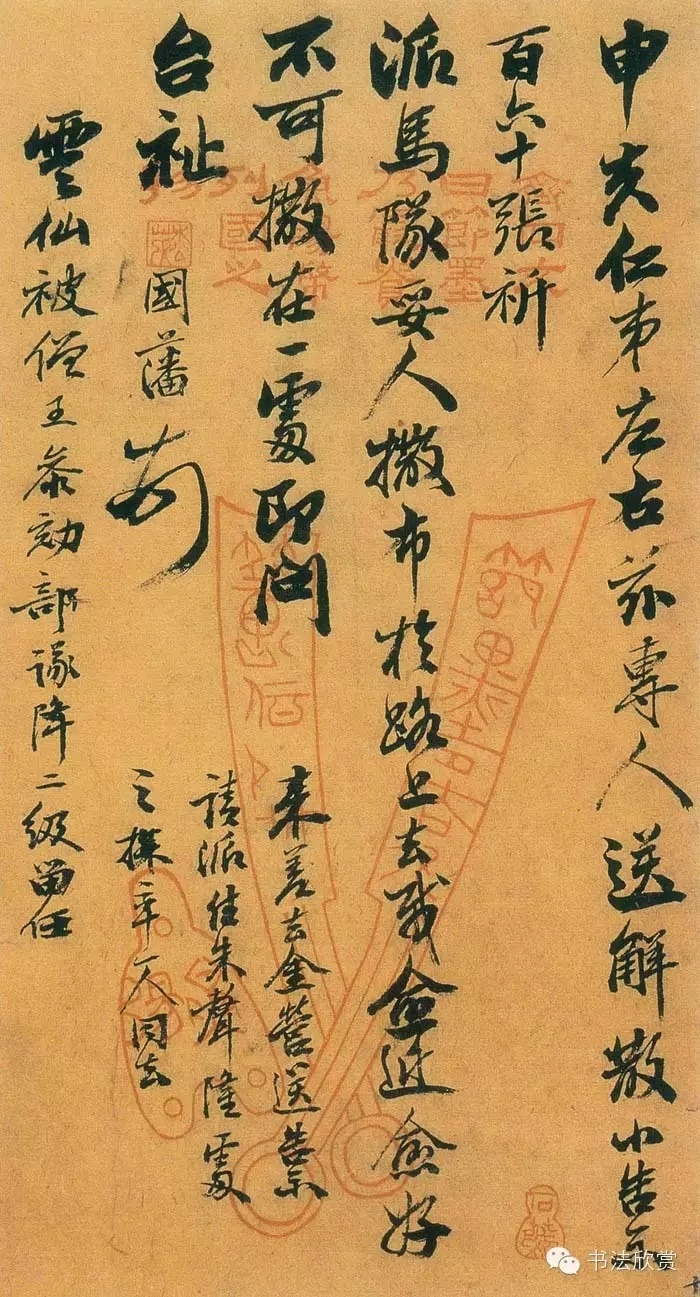 申夫仁弟左右茲專人送解散小告示
百六十張祈
派馬隊妥人撒布於路上去賊愈近愈好
不可撒在一處即問
台祉 國藩
來善去金營送告示
請派往朱聲隆處
之探卒一人同去
雲仙被僧王叅劾部議降二級留任
书法欣赏